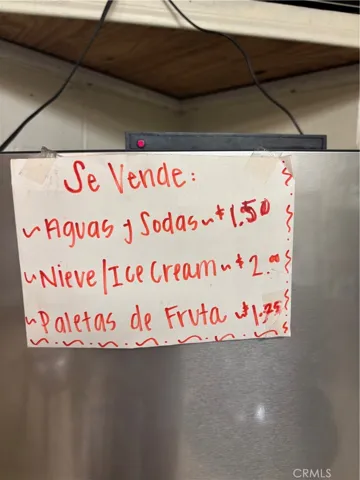 Se Vende:
~Aguas y Sodas~$1.50
~Nieve/Ice Cream~$2.00
~Paletas de Fruta ~$1.75
CRMLS